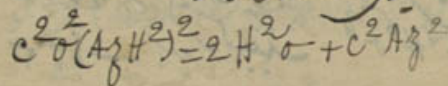 C²O²(AzH²)² = 2H²O + C²Az²